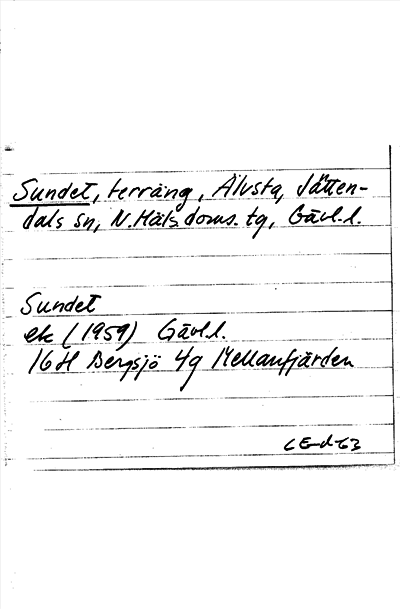 Sundet, terräng, Älvsta, Jätten-
dals sn, N. Häls. doms. tg, Gävl.l.
Sundet
ek (1959) Gävl.l.
16H Bergsjö 4g Mellanfjärden